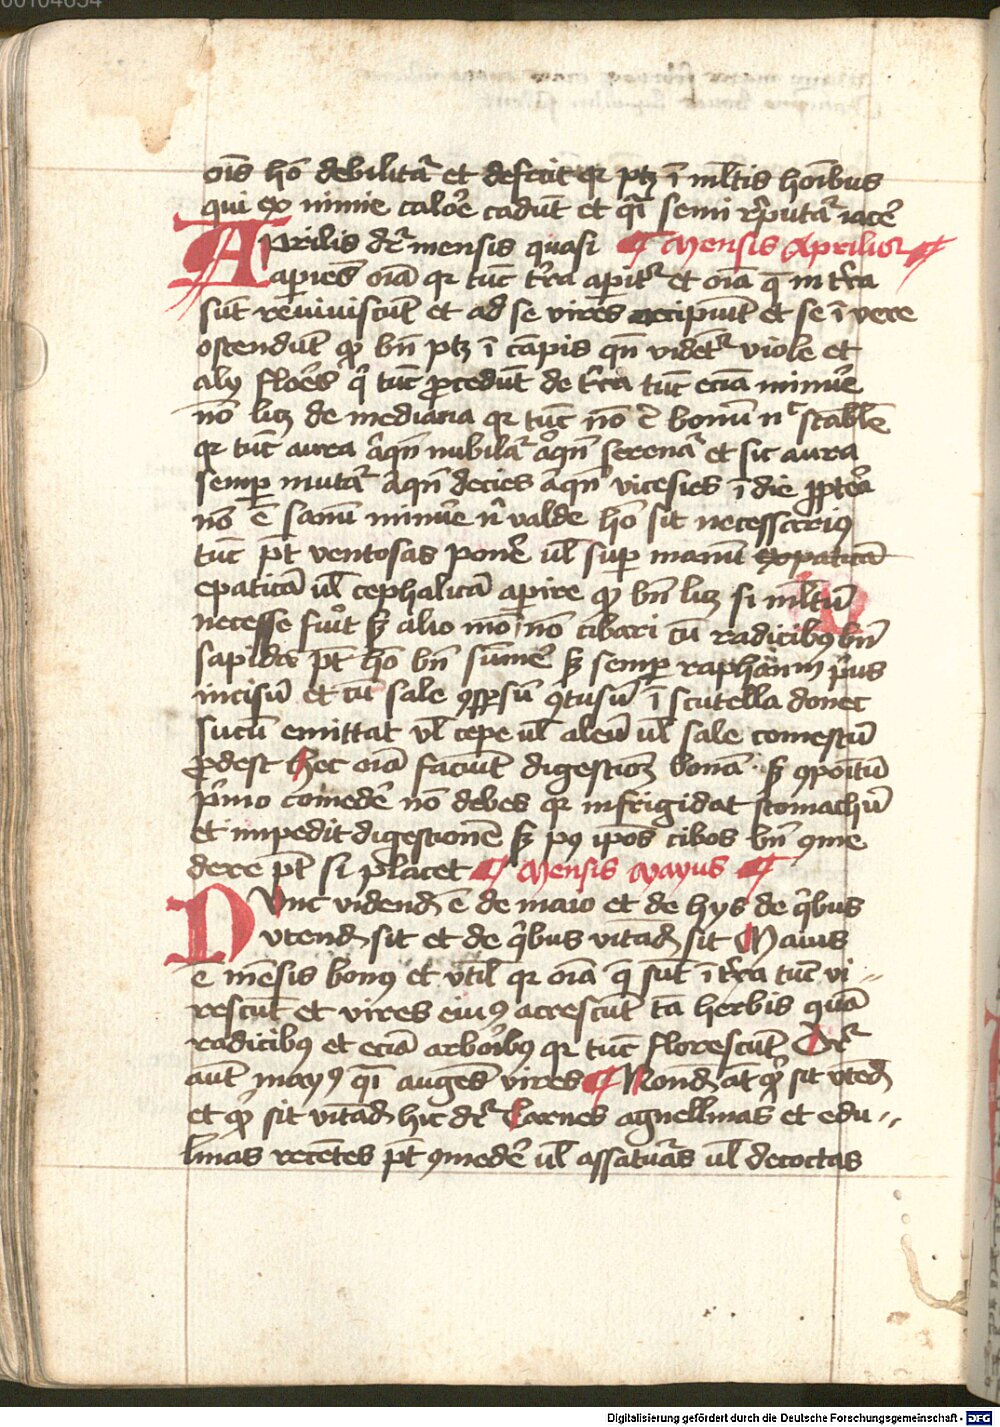 oīs hō debilitat᷑ et deficit qr ptꝫ ī ml̄tis hoībus
qui ex nimie calōe cadūt et qͥ semi rͤputat᷑ iacē
Aprilis dr̄ mensis quasi ¶ Mensis Aprilis ¶
apiēs oīa qr tūc tr̄a apit᷑ et oīa q̄ in tr̄a
sūt reuiuiscūt et ad se vires recipiūt et se ī vere
ostendūt qͦ bn̄ ptꝫ ī cāpis qn̄ vident᷑ viole et
alij flores qͥ tūc ꝓcedūt de tr̄a tūc eciā minuē
nō licꝫ de mediana qr tūc nō ē bonū nͨ stabile
qr tūc aura aͣqn̄ nubilat᷑ aͣqn̄ serenat᷑ et sic aura
semꝑ mutat᷑ aͣqn̄ decies aͣqn̄ vicesies ī die ꝓpterea
nō ē sanū minuē nͥ valde hō sit necessariꝰ
tūc pt̄ ventosas ponē ul̄ suꝑ manū expaticā
epaticā ul̄ cephalicā aperire qͦ bn̄ licꝫ si ml̄tū
necesse fuͥit sꝫ alio mō nō cibari cū radicibꝰ bn̄
sapidis pt̄ hō bn̄ sumē sꝫ semꝑ raphanū pͥus
incisū et cū sale ꝯspersū ꝯtusū ī scutella donec
sucū emittat ul̄ cepe ul̄ aleū ul̄ sale comestū
ꝓdest hec oīa faciūt digestionē bonā sꝫ ꝯpoītū
pͥmo comedē nō debes qr infrigidat stomachū
et impedit digestionē sꝫ pꝰ ipos cibos bn̄ ꝯme
dere pt̄ si placet ¶ Mensis Mayus ¶
Nunc vidend ē de maio et de hijs de qͥbus
vtend sit et de qͥbus vitād sit Maius
ē mēsis bonꝰ et vtil qr oīa q̄ sūt ī tr̄a tūc vi
rescūt et vires eiꝰ acrescūt tā herbis quā
radicibꝰ et eciā arboribꝰ qr tūc florescūt Dr̄
aut mayꝰ qͥ augēs vires ¶ Nonð at qͦ sit vtēd
et qͦ sit vitād hic dr̄ Carnes agnellinas et edu
linas recētes pt̄ ꝯmedē ul̄ assaturas ul̄ decoctas
Digitalisierung gefördert durch die Deutsche Forschungsgemeinschaft - DFG